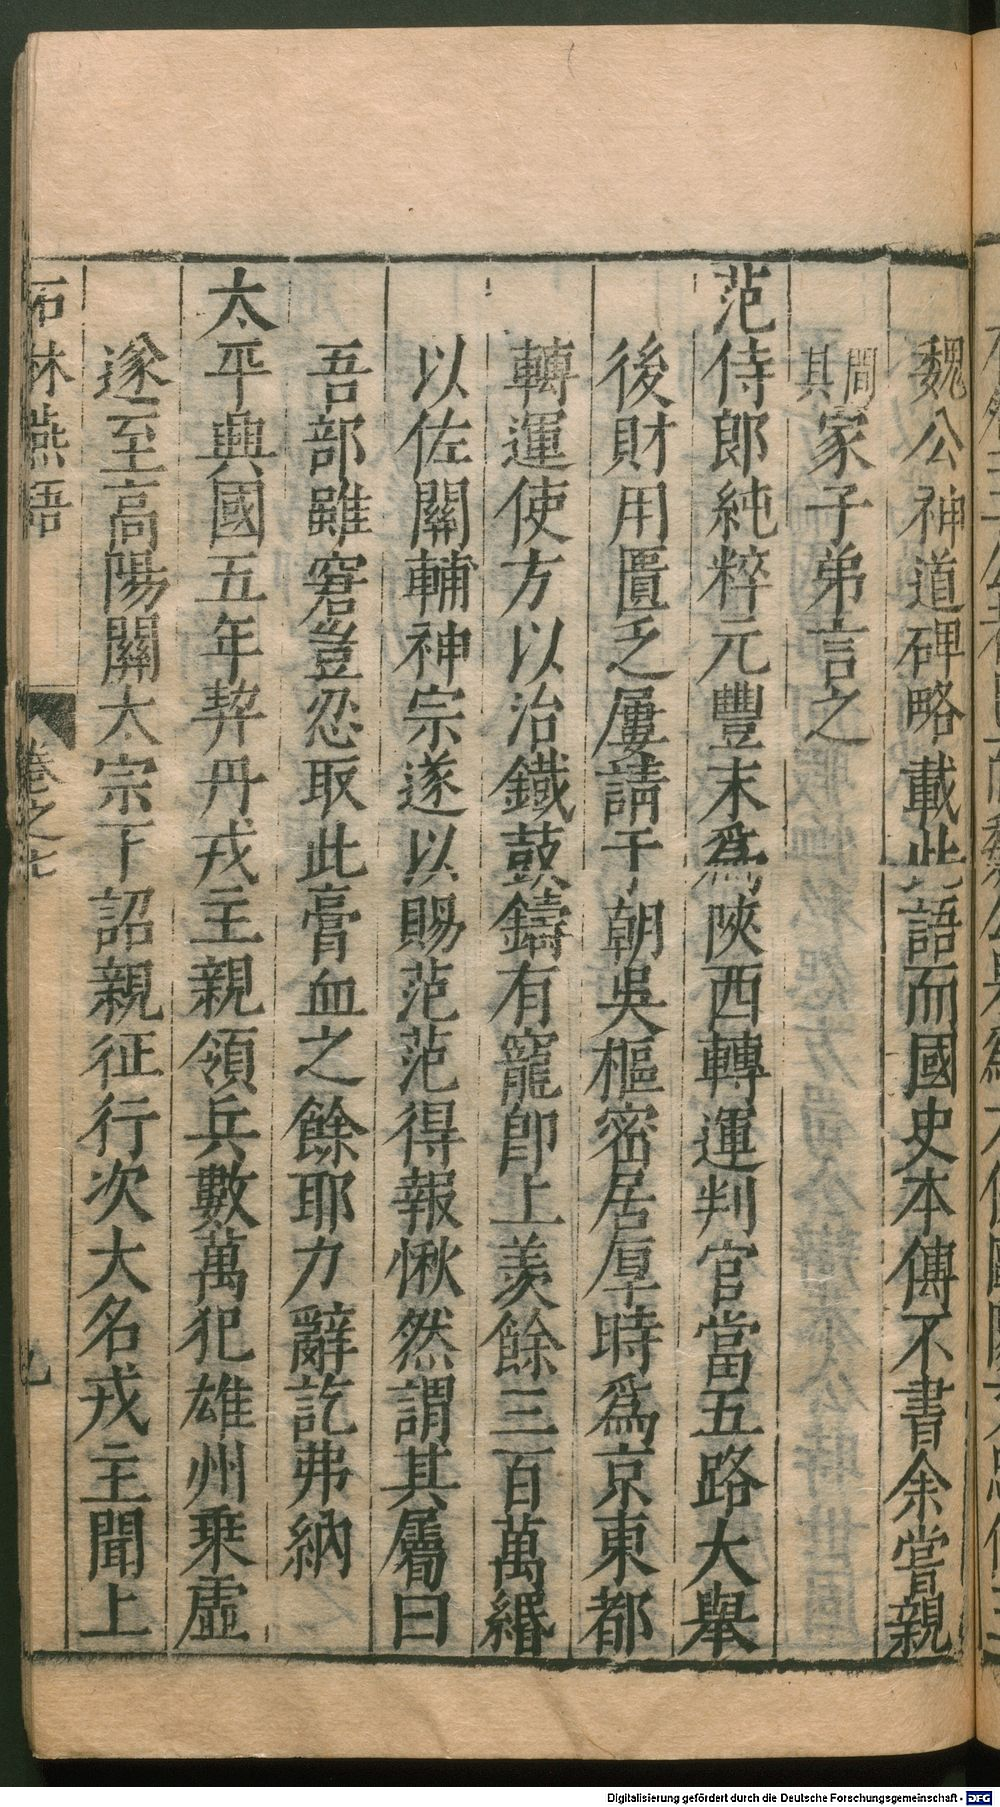 魏公神道碑略載此語而國史本傳不書余嘗親
間其家子弟言之
范侍郎純粹元豐末為陝西轉運判官當五路大舉
後財用匱乏屢請于朝吳樞密居厚時為京東都
轉運使方以冶鐵鼓鑄有寵卽上羨餘三百萬緡
以佐關輔神宗遂以賜范范得報愀然謂其屬曰
吾部雖窘豈忍取此膏血之餘耶力辭訖弗納
太平興國五年契丹戎主親領兵數萬犯雄州乘虛
遂至高陽關太宗下詔親征行次大名戎主聞上
石林燕語 卷之七 九
Digitalisierung gefördert durch die Deutsche Forschungsgemeinschaft - DFG